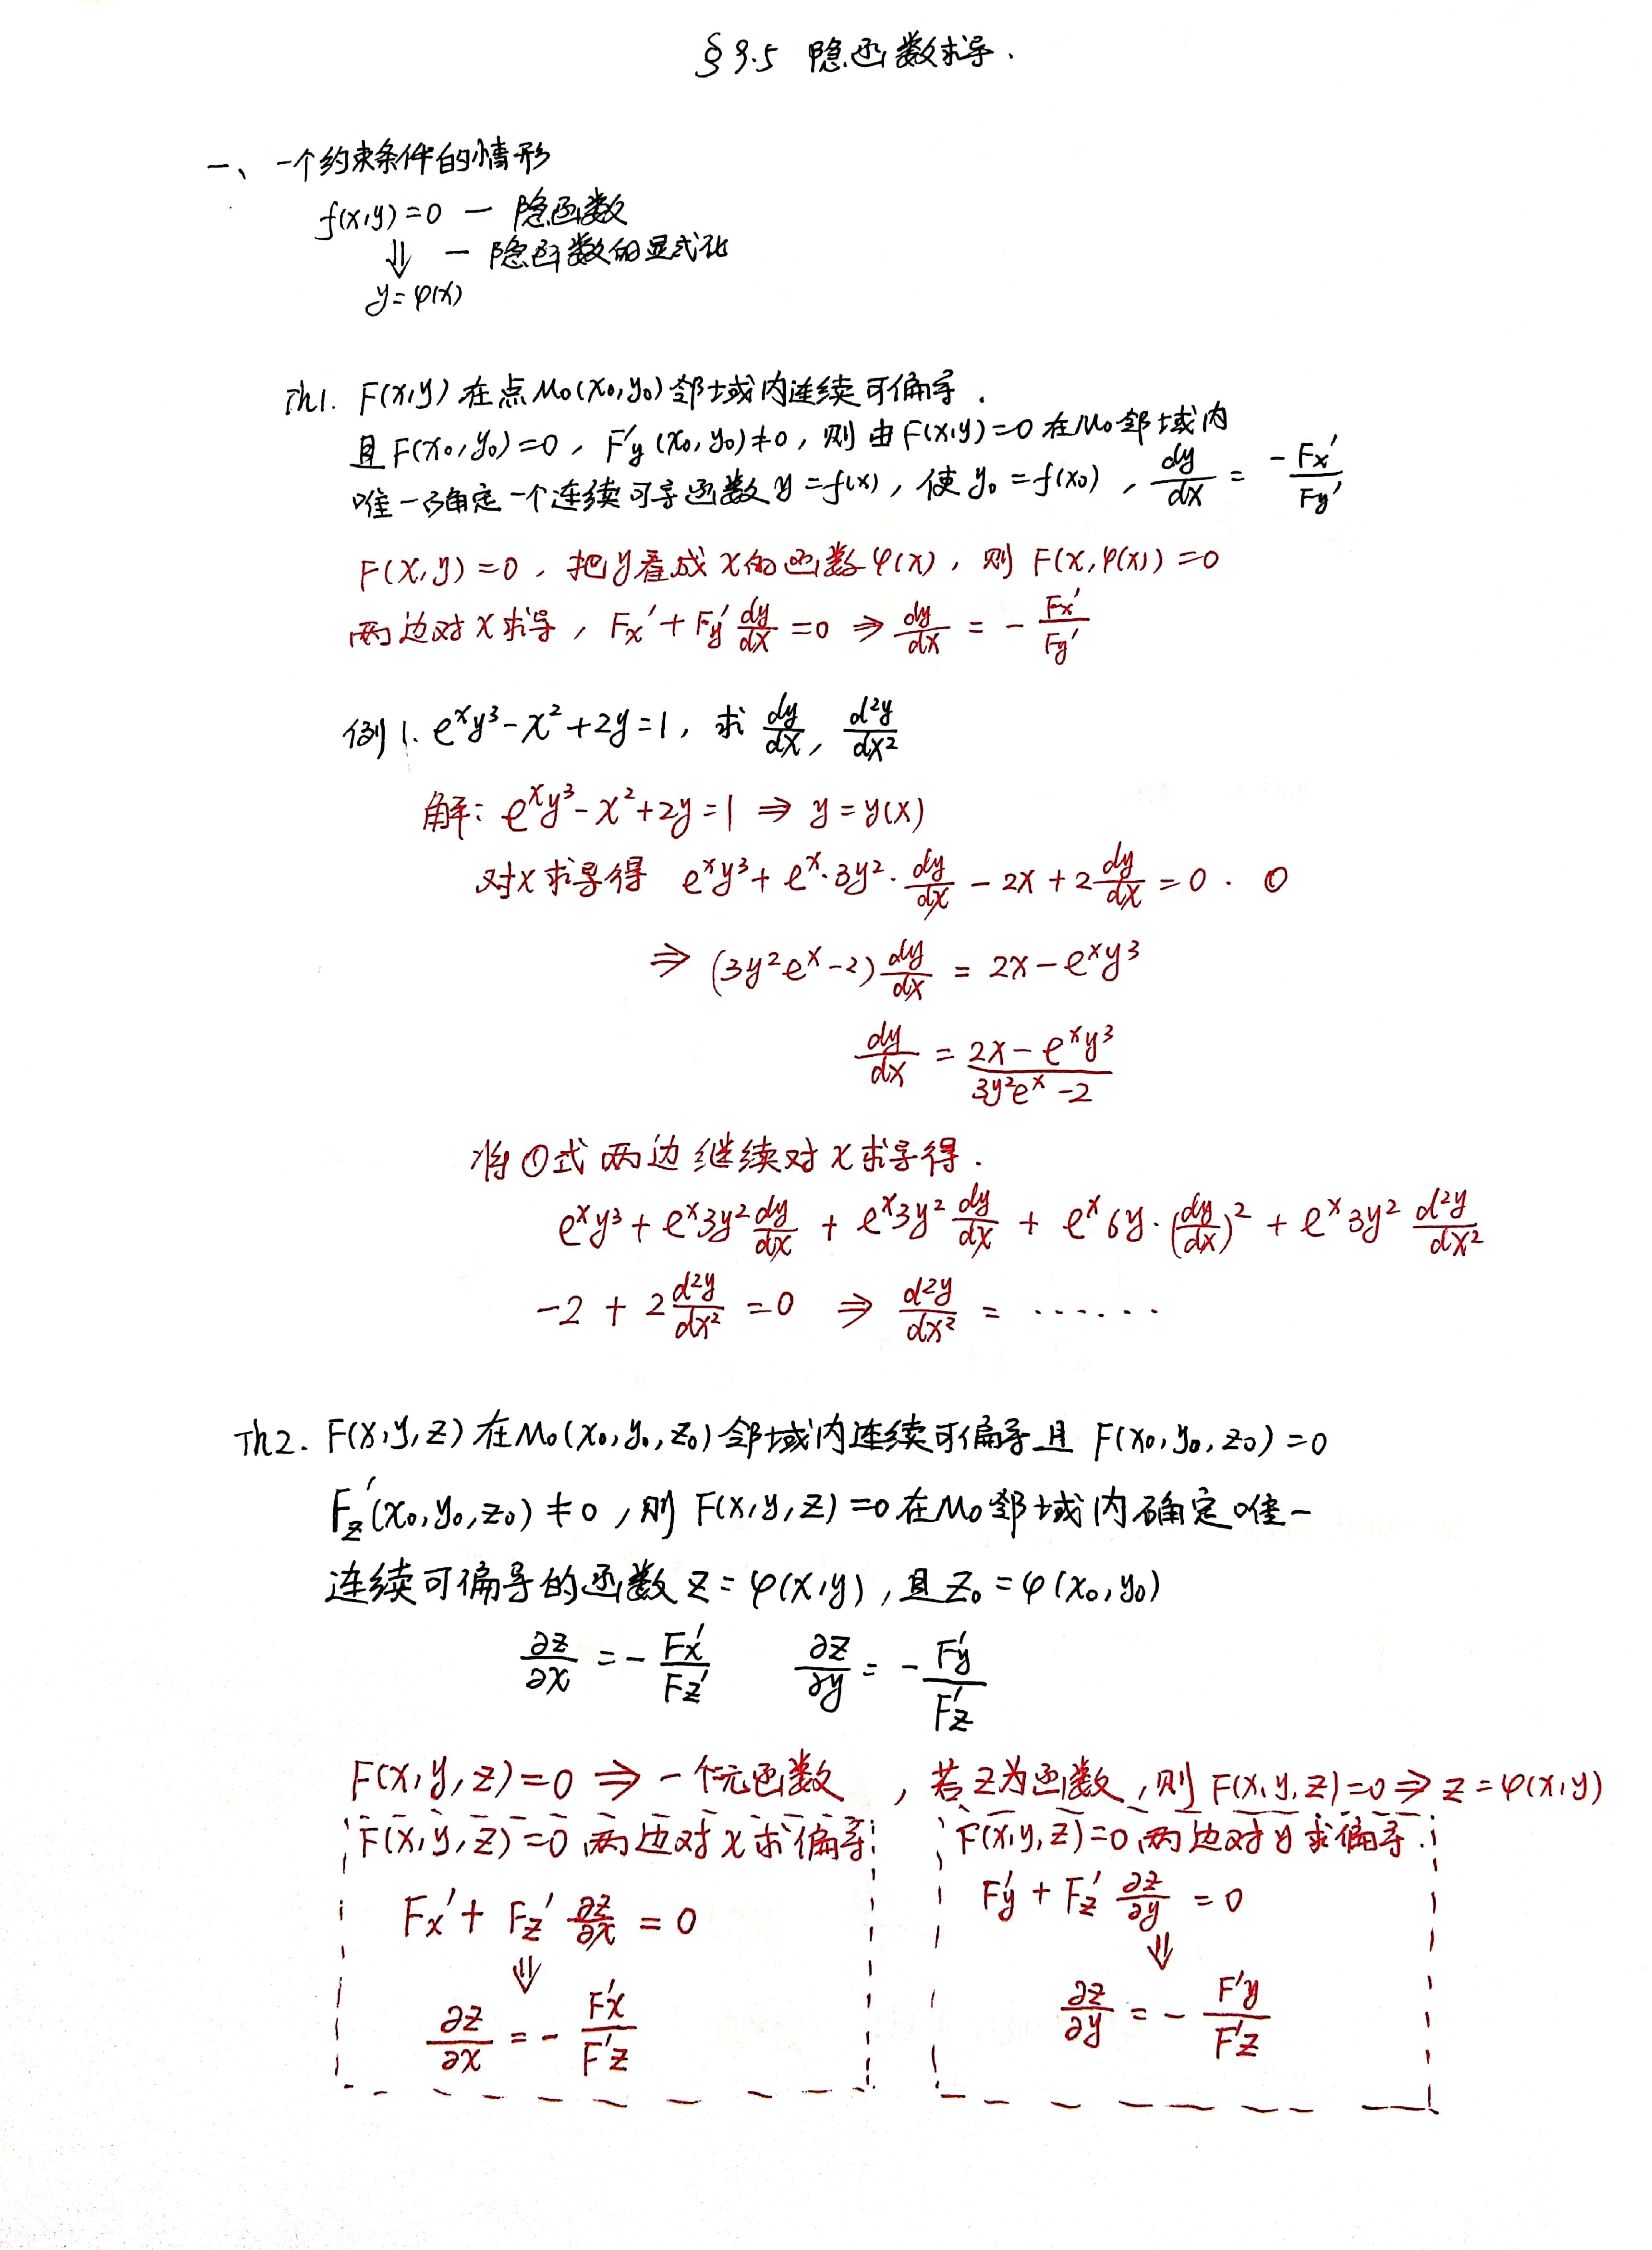 §9.5 隐函数求导.
一、一个约束条件的情形
f(x,y)=0 — 隐函数
⇓ — 隐函数的显式化
y=φ(x)
Th1. F(x,y)在点M₀(x₀,y₀)邻域内连续可偏导.
且F(x₀,y₀)=0, F'y(x₀,y₀)≠0, 则由F(x,y)=0在M₀邻域内
唯一确定一个连续可导函数y=f(x), 使y₀=f(x₀), dy/dx = -Fx'/Fy'
F(x,y)=0, 把y看成x的函数φ(x), 则F(x,φ(x))=0
两边对x求导, Fx'+Fy' dy/dx=0 ⇒ dy/dx = - Fx'/Fy'
例1. eˣy³-x²+2y=1, 求 dy/dx, d²y/dx²
解: eˣy³-x²+2y=1 ⇒ y=y(x)
对x求导得 eˣy³+eˣ·3y²·dy/dx-2x+2dy/dx=0. ①
⇒ (3y²eˣ-2)dy/dx = 2x-eˣy³
dy/dx = (2x-eˣy³)/(3y²eˣ-2)
将①式两边继续对x求导得.
eˣy³+eˣ3y²dy/dx + eˣ3y²dy/dx + eˣ6y·(dy/dx)² + eˣ3y² d²y/dx²
-2 + 2d²y/dx² =0 ⇒ d²y/dx² = ······
Th2. F(x,y,z)在M₀(x₀,y₀,z₀)邻域内连续可偏导且 F(x₀,y₀,z₀)=0
Fz'(x₀,y₀,z₀)≠0, 则 F(x,y,z)=0在M₀邻域内确定唯一
连续可偏导的函数z=φ(x,y), 且z₀=φ(x₀,y₀)
∂z/∂x = - Fx'/Fz' ∂z/∂y = - F'y/F'z
F(x,y,z)=0 ⇒ 一个元函数, 若z为函数, 则F(x,y,z)=0 ⇒ z=φ(x,y)
F(x,y,z)=0两边对x求偏导
Fx'+Fz' ∂z/∂x = 0
⇓
∂z/∂x = - F'x/F'z
F(x,y,z)=0两边对y求偏导.
F'y+Fz' ∂z/∂y = 0
⇓
∂z/∂y = - F'y/F'z